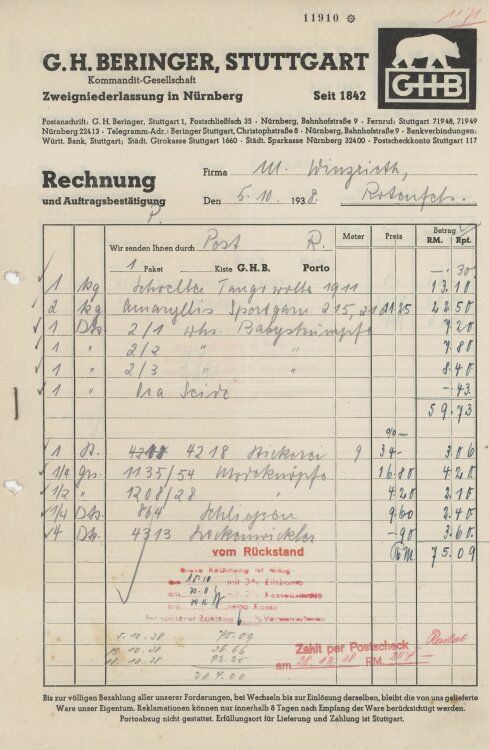 11910 ✻
G. H. BERINGER, STUTTGART
Kommandit-Gesellschaft
Zweigniederlassung in Nürnberg Seit 1842
GHB
Postanschrift: G. H. Beringer, Stuttgart 1, Postschließfach 35 · Nürnberg, Bahnhofstraße 9 · Fernruf: Stuttgart 71948, 71949
Nürnberg 22413 · Telegramm-Adr.: Beringer Stuttgart, Christophstraße 8 · Nürnberg, Bahnhofstraße 9 · Bankverbindungen:
Württ. Bank, Stuttgart; Städt. Girokasse Stuttgart 1660 · Städt. Sparkasse Nürnberg 32400 · Postscheckkonto Stuttgart 117
Rechnung
und Auftragsbestätigung
Firma M.
Den 5.10. 1938. Rotenfels.
Meter Preis Betrag
RM. Rpf.
Wir senden Ihnen durch Post R.
1 Paket Kiste G.H.B. Porto -. 30.
1 kg Tangowolle 1911 13.10
2 kg Amaryllis Sportgarn 215, 11.25 22.50
1 Dtz. 2/1 Babystrümpfe 7.20
1 " 2/2 " " 7.80
1 " 2/3 " " 8.40
1 " Seide -. 43.
59.73
1 4218 Stickerei 9 34- 3.06
1/4 grs. 1135/54 Modeknöpfe 16.80 4.20
1/2 " 1208/28 " 4.20 2.10
1/4 Dtz. 864 9.60 2.40
4 Dtz. 4313 Lockenwickler -.90 3.60.
vom Rückstand RM. 75.09
Diese Rechnung ist fällig:
am 15.10 mit 3% Eilskonto
am 30.11 mit 2% Kassenskonto
am netto Kasse
5.10.38 75.09
10.10.38
204.00
Zahlt per Postscheck
am 28.12.38 RM.
Bis zur völligen Bezahlung aller unserer Forderungen, bei Wechseln bis zur Einlösung derselben, bleibt die von uns gelieferte
Ware unser Eigentum. Reklamationen können nur innerhalb 8 Tagen nach Empfang der Ware berücksichtigt werden.
Portoabzug nicht gestattet. Erfüllungsort für Lieferung und Zahlung ist Stuttgart.